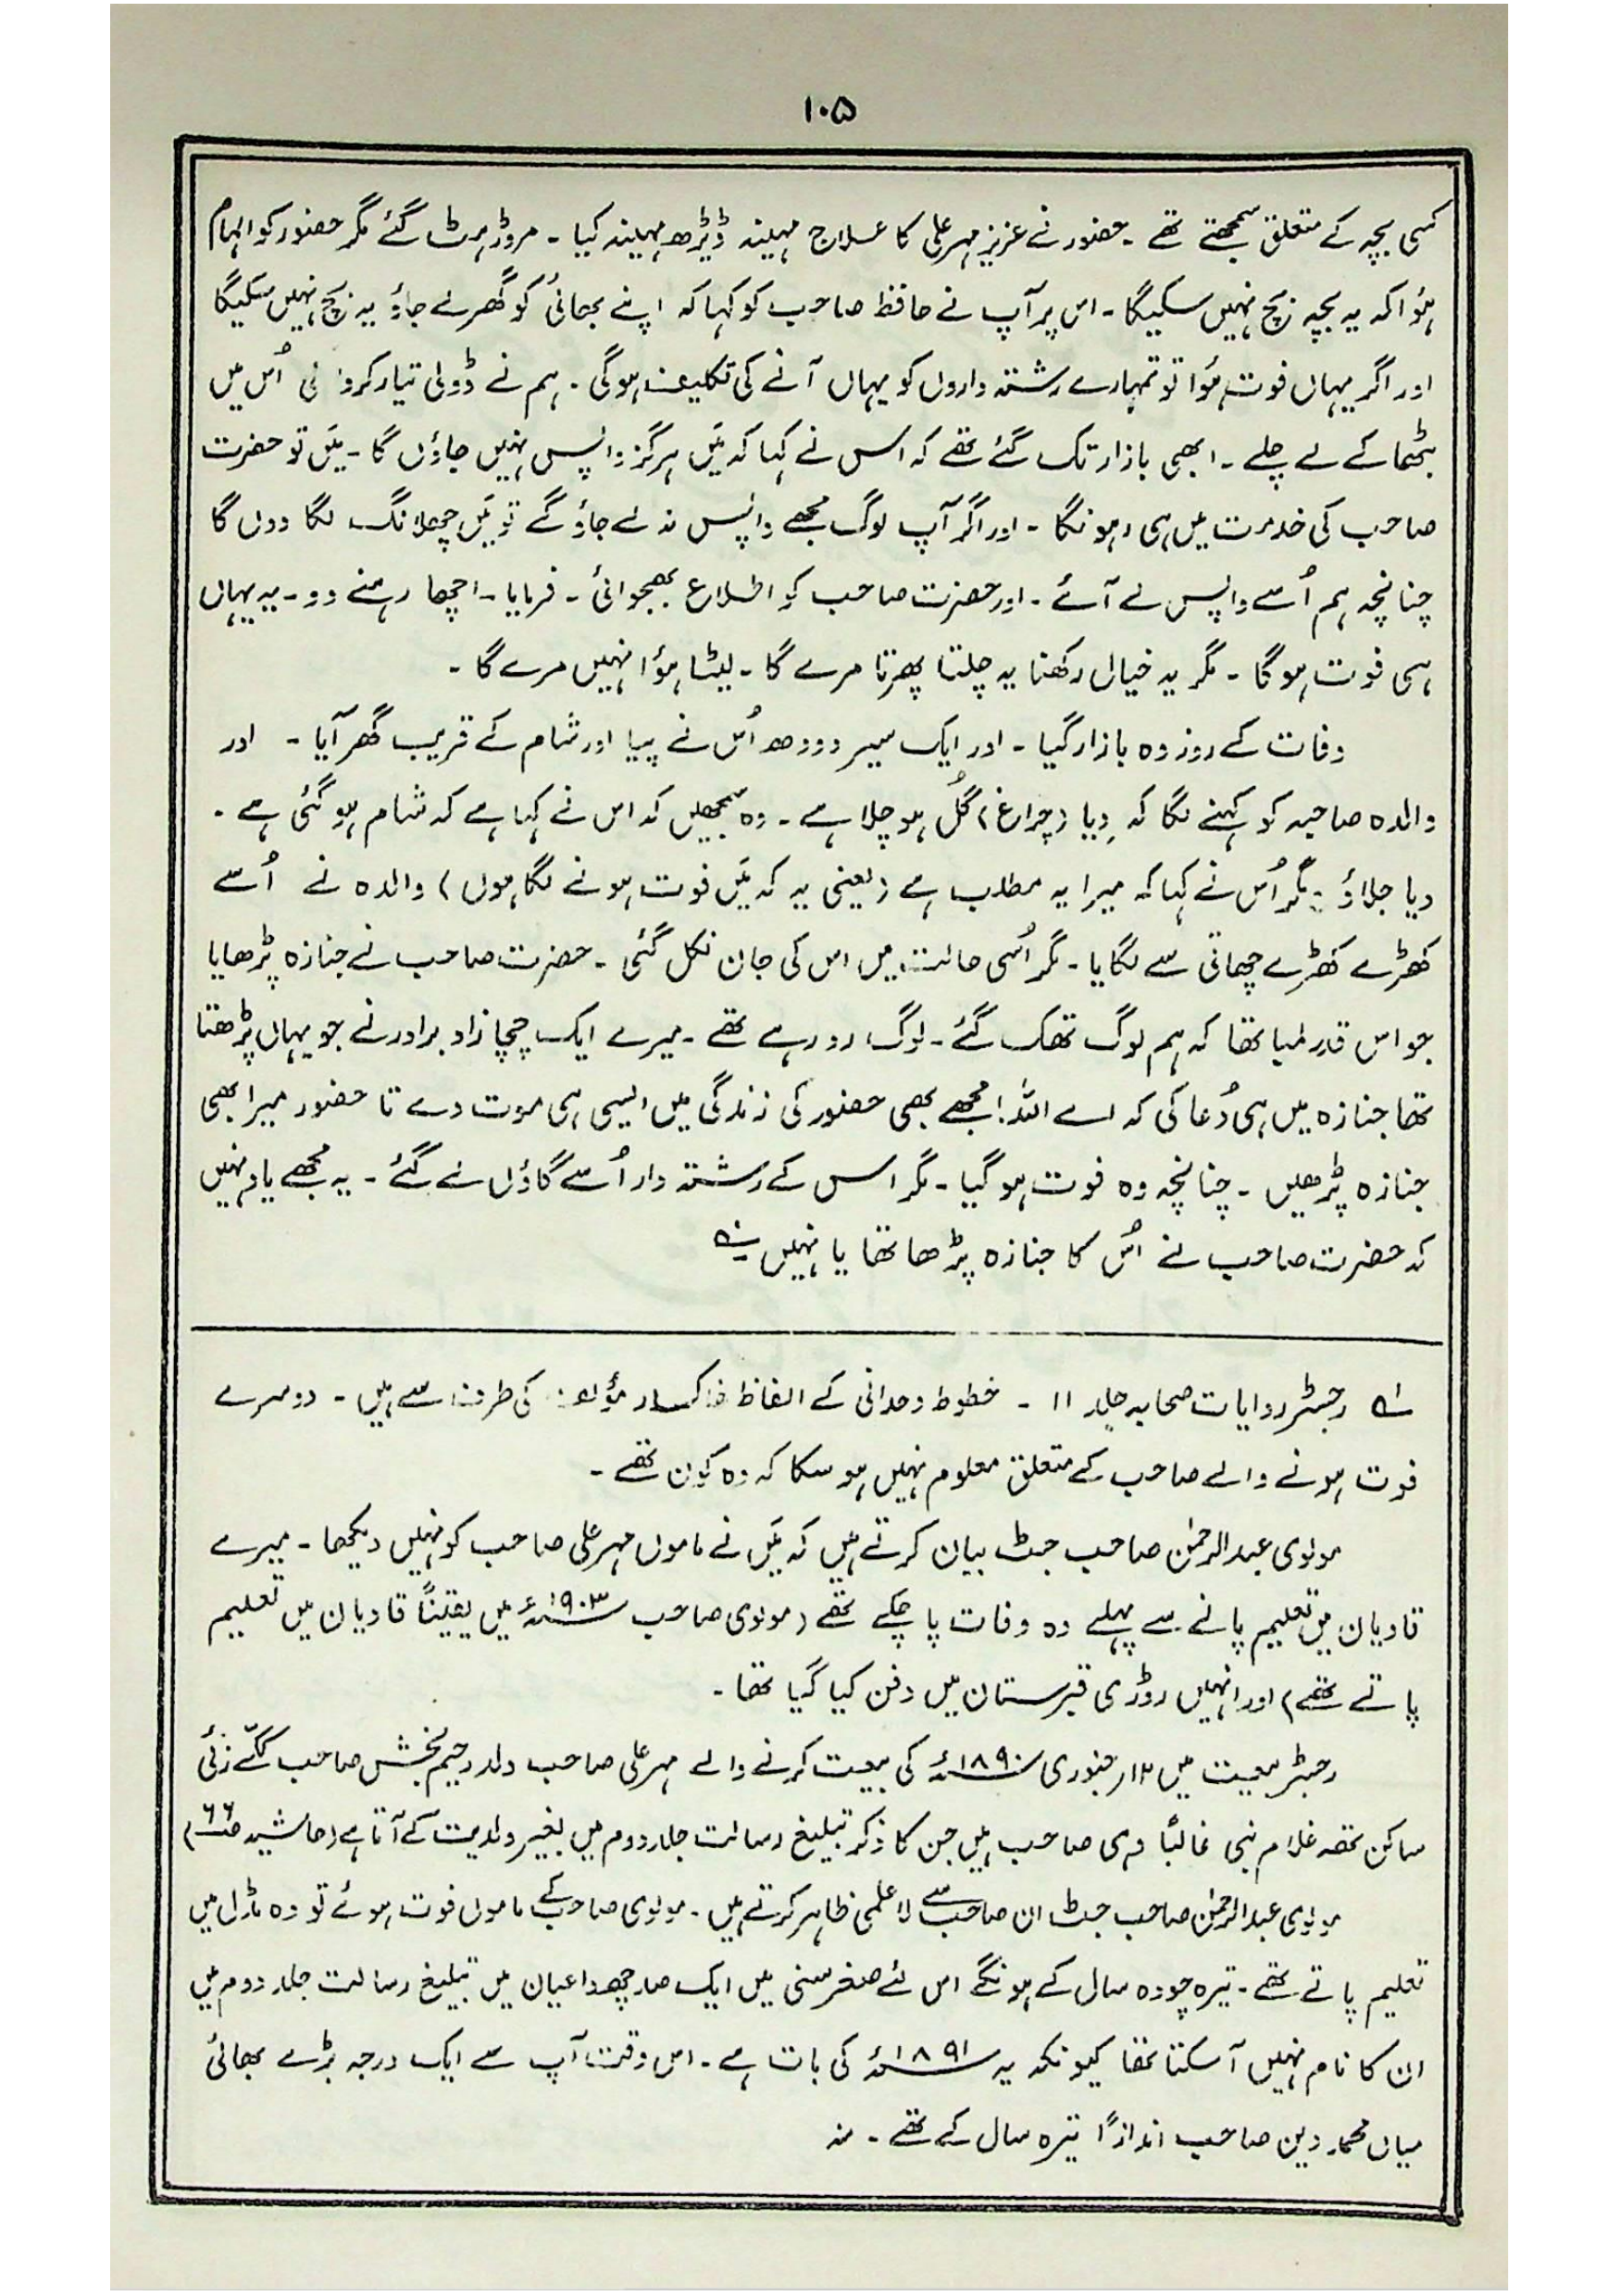 ۱۰۵
کسی بچہ کے متعلق سمجھتے تھے ۔ حضور نے عزیز مہر علی کا علاج مہینہ ڈیڑھ مہینہ کیا ۔ مروڑ ہٹ گئے مگر حضور کو الہام
ہؤا کہ یہ بچہ بچ نہیں سکیگا ۔ اس پر آپ نے حافظ صاحب کو کہا کہ اپنے بھائی کو گھر لے جاؤ یہ بچ نہیں سکیگا
اور اگر یہاں فوت ہؤا تو تمہارے رشتہ داروں کو یہاں آنے کی تکلیف ہوگی ۔ ہم نے ڈولی تیار کروائی اُس میں
بٹھا کے لے چلے ۔ ابھی بازار تک گئے تھے کہ اس نے کہا کہ میَں ہرگز واپس نہیں جاؤں گا ۔ میَں تو حضرت
صاحب کی خدمت میں ہی رہونگا ۔ اور اگر آپ لوگ مجھے واپس نہ لے جاؤ گے تو میَں چھلانگ لگا دوں گا
چنانچہ ہم اُسے واپس لے آئے ۔ اور حضرت صاحب کو اطلاع بھجوائی ۔ فرمایا ۔ اچھا رہنے دو ۔ یہ یہاں
ہی فوت ہو گا ۔ مگر یہ خیال رکھنا یہ چلتا پھرتا مرے گا ۔ لیٹا ہؤا نہیں مرے گا ۔
وفات کے روز وہ بازار گیا ۔ اور ایک سیر دودھ اُس نے پیا اور شام کے قریب گھر آیا ۔ اور
والدہ صاحبہ کو کہنے لگا کہ دِیا (چراغ) گُل ہو چلا ہے ۔ وہ سمجھیں کہ اس نے کہا ہے کہ شام ہو گئی ہے ۔
دیا جلاؤ ۔ مگر اُس نے کہا کہ میرا یہ مطلب ہے (یعنی یہ کہ میَں فوت ہونے لگا ہوں) والدہ نے اُسے
کھڑے کھڑے چھاتی سے لگایا ۔ مگر اُسی حالت میں اس کی جان نکل گئی ۔ حضرت صاحب نے جنازہ پڑھایا
جو اس قدر لمبا تھا کہ ہم لوگ تھک گئے ۔ لوگ رو رہے تھے ۔ میرے ایک چچا زاد برادر نے جو یہاں پڑھتا
تھا جنازہ میں ہی دُعا کی کہ اے اللہ! مجھے بھی حضور کی زندگی میں ایسی ہی موت دے تا حضور میرا بھی
جنازہ پڑھیں ۔ چنانچہ وہ فوت ہو گیا ۔ مگر اس کے رشتہ دار اُسے گاؤں لے گئے ۔ یہ مجھے یاد نہیں
کہ حضرت صاحب نے اُس کا جنازہ پڑھا تھا یا نہیں ؎۱
؎۱ رجسٹر روایات صحابہ جلد ۱۱ ۔ خطوط وحدانی کے الفاظ خاکسار مؤلف کی طرف سے ہیں ۔ دوسرے
فوت ہونے والے صاحب کے متعلق معلوم نہیں ہو سکا کہ وہ کون تھے ۔
مولوی عبدالرحمٰن صاحب جٹ بیان کرتے ہیں کہ میَں نے ماموں مہر علی صاحب کو نہیں دیکھا ۔ میرے
قادیان میں تعلیم پانے سے پہلے وہ وفات پا چکے تھے (مولوی صاحب ۱۹۰۳ء میں یقیناً قادیان میں تعلیم
پاتے تھے) اور انہیں روڑی قبرستان میں دفن کیا گیا تھا ۔
رجسٹر بیعت میں ۱۲؍ جنوری ۱۸۹۰ء کی بیعت کرنے والے مہر علی صاحب ولد رحیم بخش صاحب ککّے زئی
ساکن تھہ غلام نبی غالباً وہی صاحب ہیں جن کا ذکر تبلیغ رسالت جلد دوم میں بغیر ولدیت کے آتا ہے (حاشیہ ص۶۶)
مولوی عبدالرحمٰن صاحب جٹ ان صاحب سے لا علمی ظاہر کرتے ہیں ۔ مولوی صاحب کے ماموں فوت ہوئے تو وہ مڈل میں
تعلیم پاتے تھے ۔ تیرہ چودہ سال کے ہونگے اس لئے صغر سنی میں ایک صد چھ داعیان میں تبلیغ رسالت جلد دوم میں
ان کا نام نہیں آ سکتا تھا کیونکہ یہ ۱۸۹۱ء کی بات ہے ۔ اس وقت آپ سے ایک درجہ بڑے بھائی
میاں محمد دین صاحب اندازاً تیرہ سال کے تھے ۔ منہ